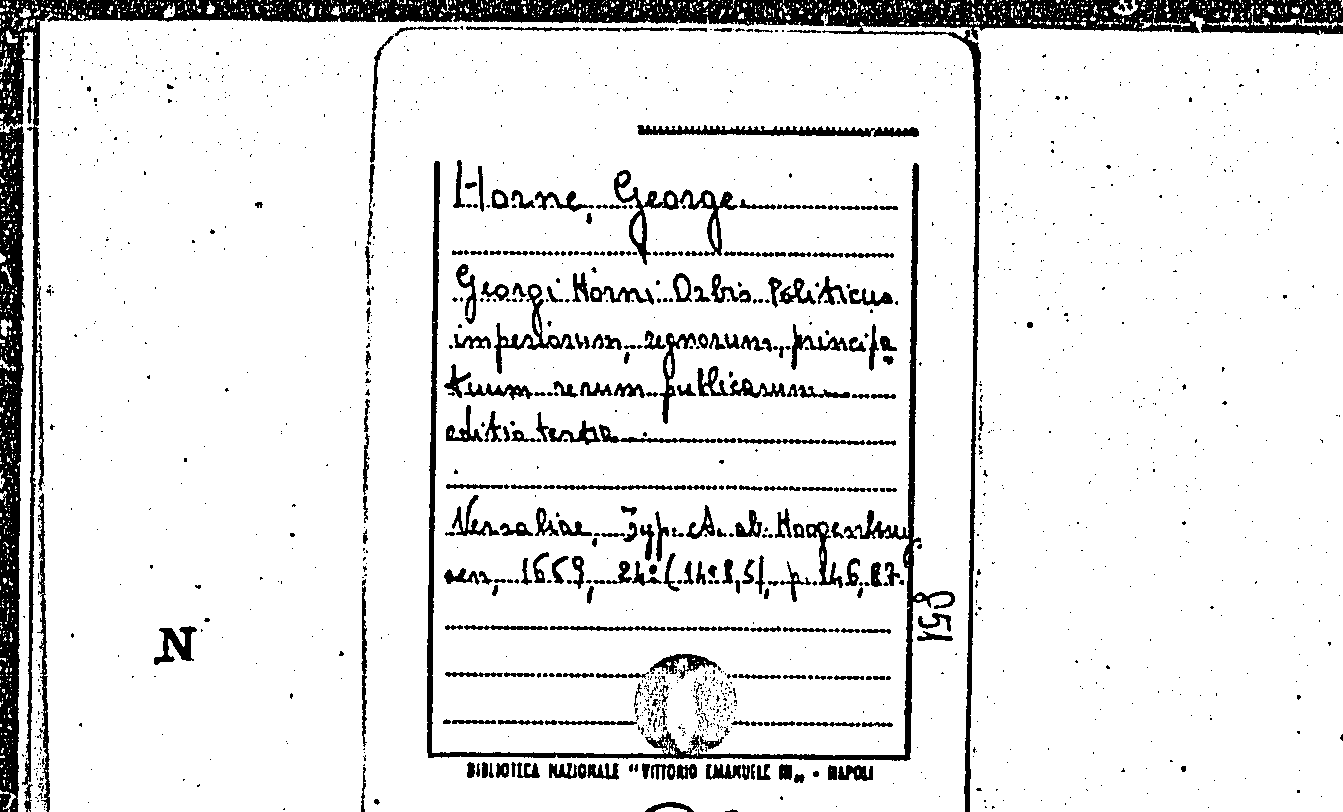 Horne, George.
Georgi Horni Orbis Politicus
imperiorum, regnorum, principa
tuum rerum publicarum
editio tertia
Versaliae, Typ. A. ab. Hoogenhuy
sen, 1669, 24° (14° 8,5), p. 146, 87.
851
N
BIBLIOTECA NAZIONALE "VITTORIO EMANUELE III" - NAPOLI